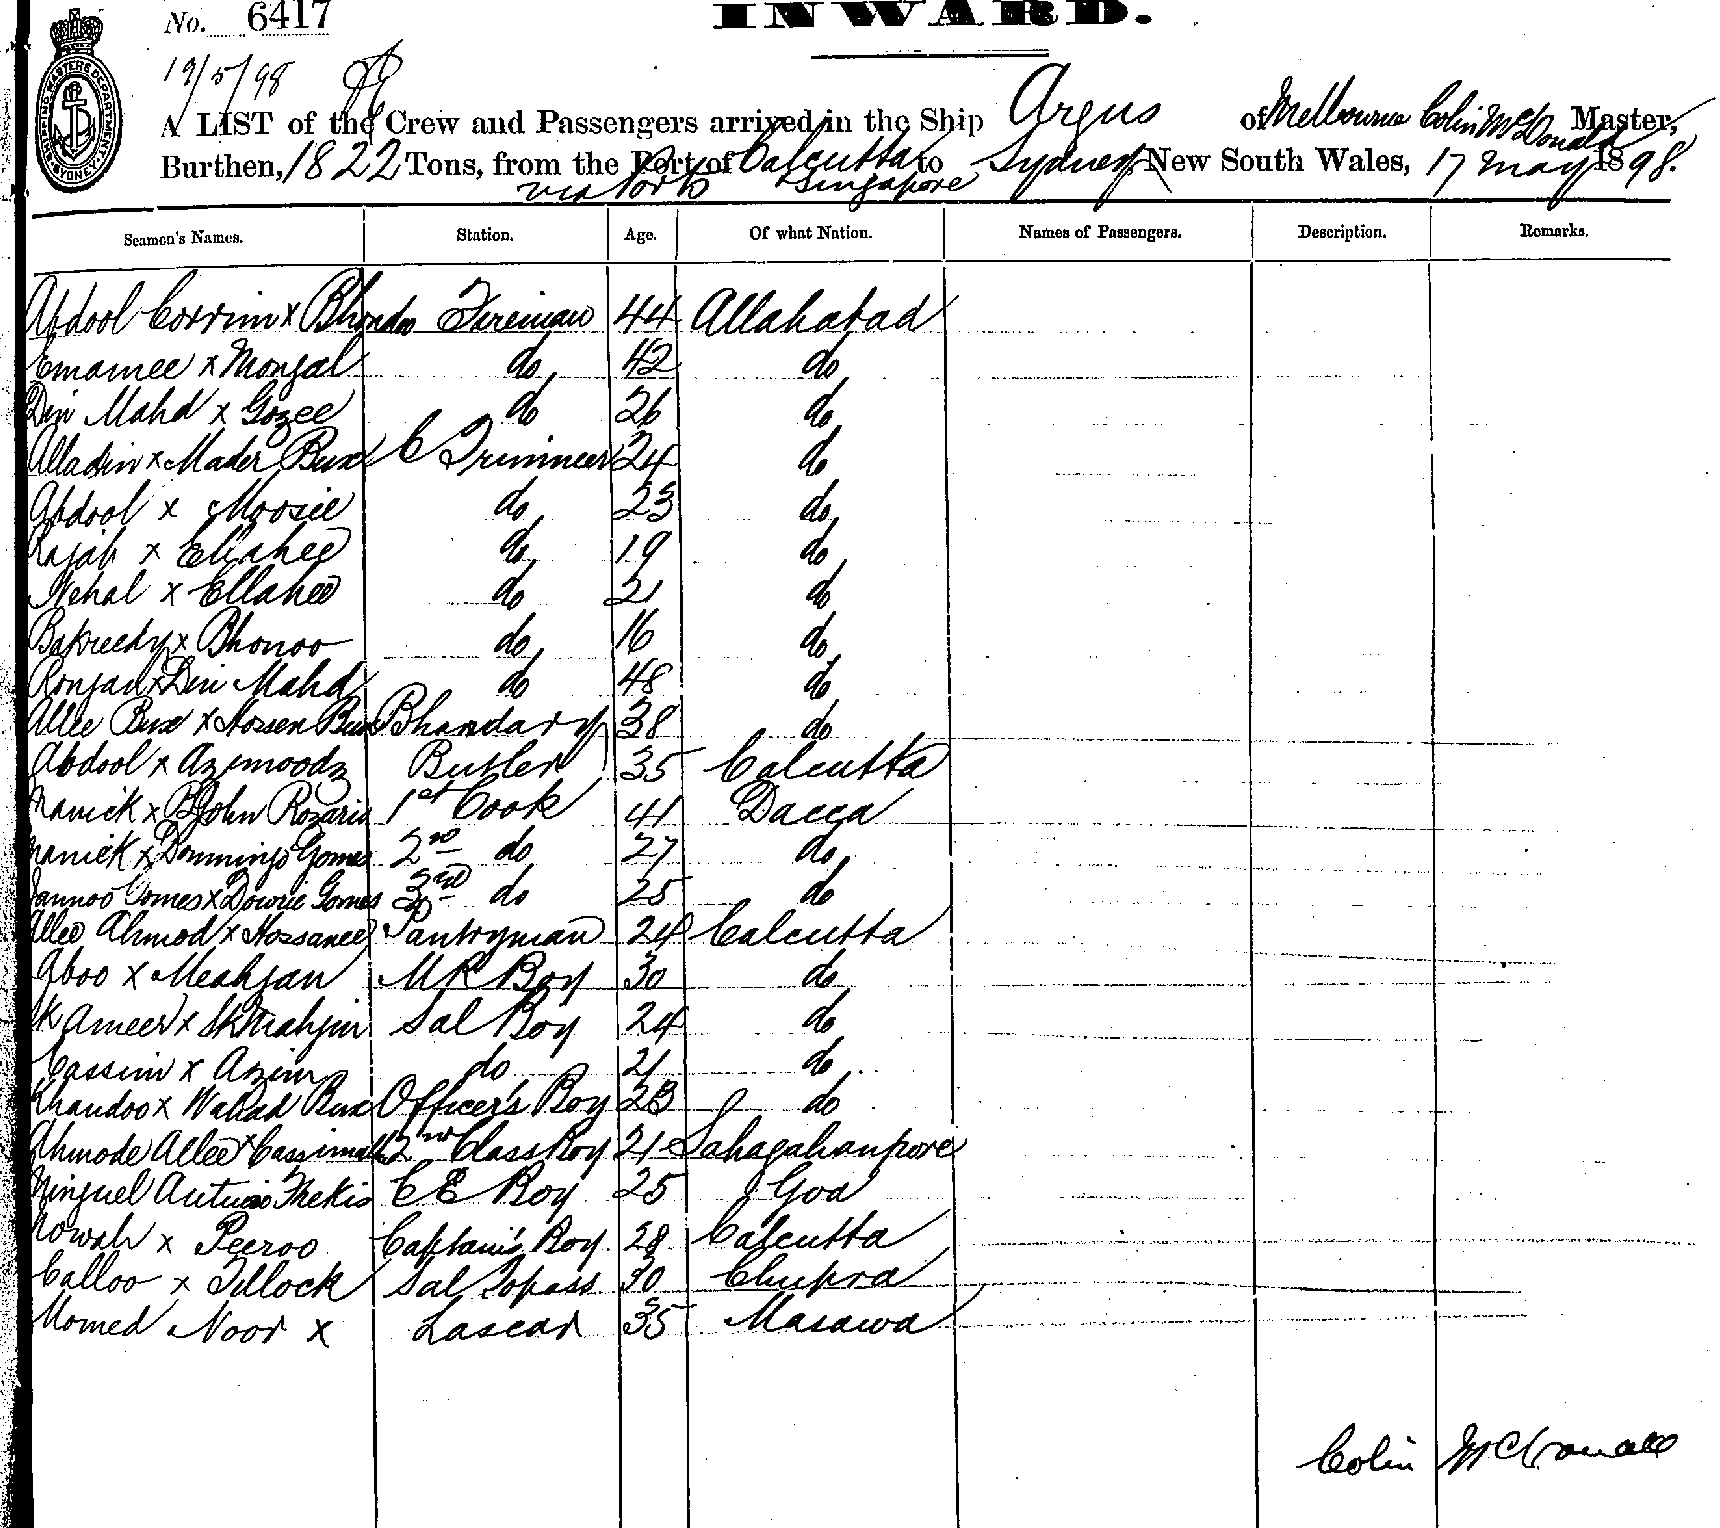 No. 6417
INWARD.
19/5/98
A LIST of the Crew and Passengers arrived in the Ship Argus of Melbourne Colin McDonald Master,
Burthen, 1822 Tons, from the Port of Calcutta to Sydney New South Wales, 17 May 1898.
via Ports Singapore
Seamen's Names. Station. Age. Of what Nation. Names of Passengers. Description. Remarks.
Abdool Corrim x Bhondoo Fireman 44 Allahabad
Emamee x Mongal do 42 do
Din Mahd x Gozee do 26 do
Alladin x Mader Bux C Trimmer 24 do
Abdool x Moosie do 23 do
Rajab x Ellahee do 19 do
Nehal x Ellahee do 21 do
Bakreedy x Bhonoo do 16 do
Ronjad x Din Mahd do 48 do
Allee Bux x Hossen Bux Bhandary 38 do
Abdool x Azimoodz Butler 35 Calcutta
Manick x John Rozario 1st Cook 41 Dacca
Manick x Dommingo Gomes 2nd do 27 do
Jannoo Gomes x Dowrie Gomes 3rd do 25 do
Allee Ahmod x Hossanee Pantryman 24 Calcutta
Aboo x Meahjan MR Boy 30 do
Sk Ameer x Sk Mahjin Sal Boy 24 do
Cassim x Azim do 21 do
Khandoo x Wahad Bux Officer's Boy 23 do
Ahmode Allee x Cassimalli 2nd Class Boy 21 Sahagahanpore
Minguel Antunio CE Boy 25 Goa
Nowab x Peeroo Captain's Boy 28 Calcutta
Calloo x Tillock Sal Topass 30 Chupra
Momed Noor x Lascar 35 Masawa
Colin McDonald